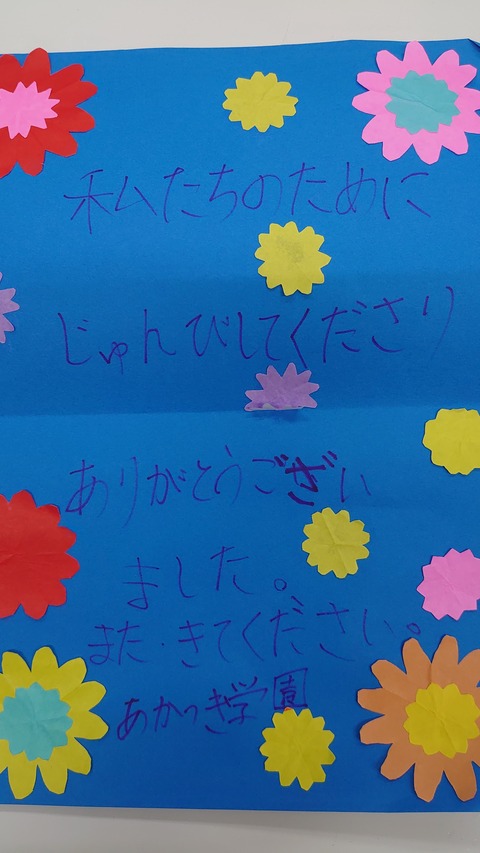 私たちのために
じゅんびしてくださり
ありがとうござい
ました。
また、きてください。
あかつき学園